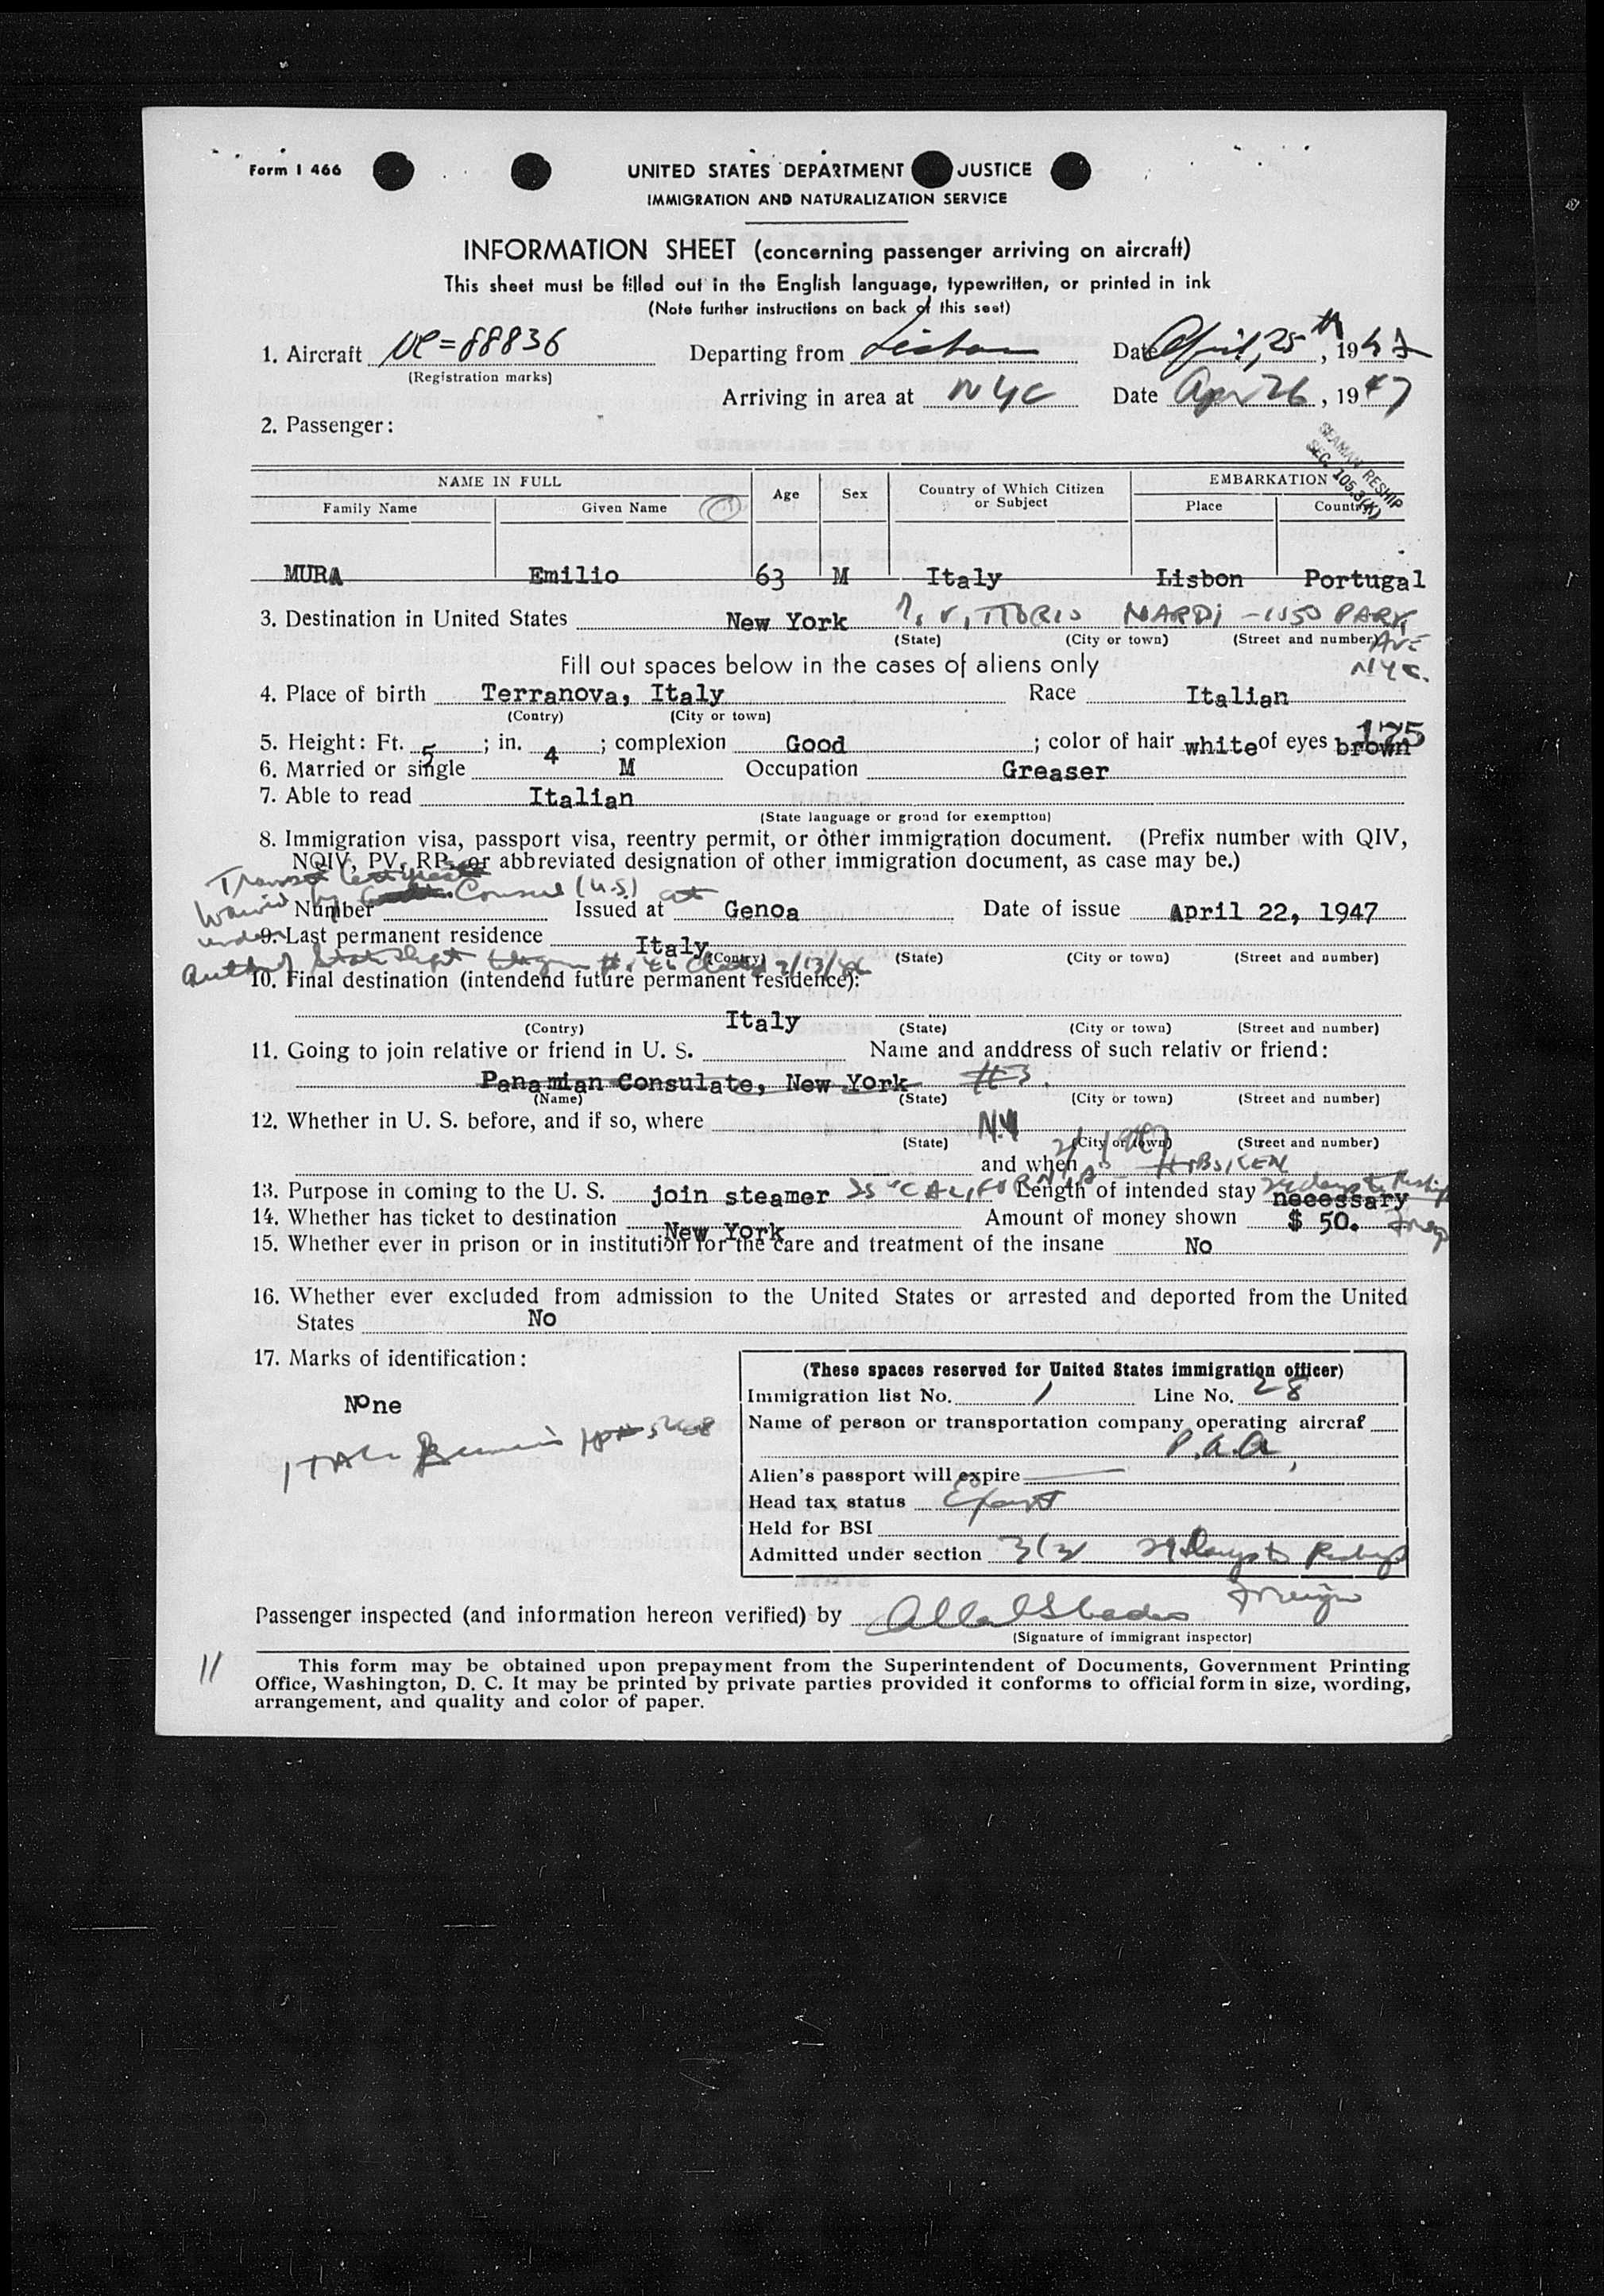 Form I 466
UNITED STATES DEPARTMENT JUSTICE
IMMIGRATION AND NATURALIZATION SERVICE
INFORMATION SHEET (concerning passenger arriving on aircraft)
This sheet must be filled out in the English language, typewritten, or printed in ink
(Note further instructions on back of this seet)
1. Aircraft NC=88836 Departing from Lisbon Date April, 25th, 1947
(Registration marks)
Arriving in area at NYC Date Apr 26, 1947
2. Passenger:
SEAMAN RESHIP
SEC. 105.3(K)
NAME IN FULL Age Sex Country of Which Citizen or Subject EMBARKATION
Family Name Given Name Place Country
MURA Emilio 63 M Italy Lisbon Portugal
3. Destination in United States New York VITTORIO NARDI - 1150 PARK
(State) (City or town) (Street and number) AVE
NYC.
Fill out spaces below in the cases of aliens only
4. Place of birth Terranova, Italy Race Italian
(Contry) (City or town)
175
5. Height: Ft. 5; in. 4; complexion Good; color of hair white of eyes brown
6. Married or single M Occupation Greaser
7. Able to read Italian
(State language or grond for exemptton)
8. Immigration visa, passport visa, reentry permit, or other immigration document. (Prefix number with QIV,
NQIV, PV, RP, or abbreviated designation of other immigration document, as case may be.)
Transit Certificate
waived by Consul (U.S.) at
Number Issued at Genoa Date of issue April 22, 1947
under
9. Last permanent residence Italy
(Contry) (State) (City or town) (Street and number)
Auth of State Dept dated
10. Final destination (intendend future permanent residence):
Italy
(Contry) (State) (City or town) (Street and number)
11. Going to join relative or friend in U. S. Name and anddress of such relativ or friend:
Panamian Consulate, New York #3.
(Name) (State) (City or town) (Street and number)
12. Whether in U. S. before, and if so, where N.Y
(State) (City or town) (Street and number)
and when HOBOKEN
13. Purpose in coming to the U. S. join steamer SS "CALIFORNIA" Length of intended stay necessary 29 days to Reship
14. Whether has ticket to destination New York Amount of money shown $ 50. Foreign
15. Whether ever in prison or in institution for the care and treatment of the insane No
16. Whether ever excluded from admission to the United States or arrested and deported from the United
States No
17. Marks of identification:
None
(These spaces reserved for United States immigration officer)
Immigration list No. 1 Line No. 28
Name of person or transportation company operating aircraf
P.A.A.
Alien's passport will expire
Head tax status Exempt
Held for BSI
Admitted under section 3(3) 29 Days to Reship
Foreign
Passenger inspected (and information hereon verified) by
(Signature of immigrant inspector)
11
This form may be obtained upon prepayment from the Superintendent of Documents, Government Printing
Office, Washington, D. C. It may be printed by private parties provided it conforms to official form in size, wording,
arrangement, and quality and color of paper.